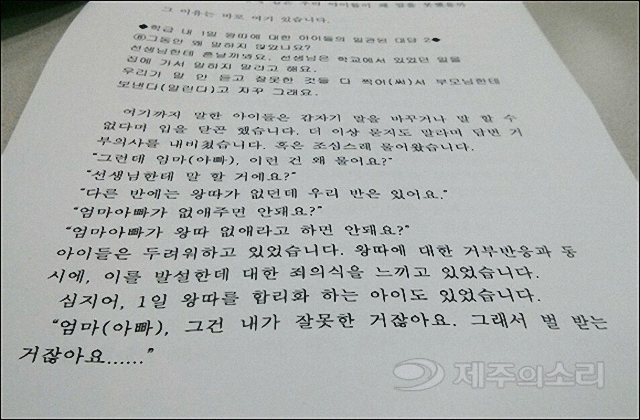 그 이유는 바로 여기 있습니다.
◆학급 내 1일 왕따에 대한 아이들의 일관된 대답 2◆
⑧그동안 왜 말하지 않았나요?
선생님한테 혼날까봐요. 선생님은 학교에서 있었던 일을
집에 가서 말하지 말라고 해요.
우리가 말 안 듣고 잘못한 것들 다 찍어(써)서 부모님한테
보낸다(알린다)고 자꾸 그래요.
여기까지 말한 아이들은 갑자기 말을 바꾸거나 말 할 수
없다며 입을 닫곤 했습니다. 더 이상 묻지도 말라며 답변 거
부의사를 내비쳤습니다. 혹은 조심스레 물어왔습니다.
"그런데 엄마(아빠), 이런 건 왜 물어요?"
"선생님한테 말 할 거에요?"
"다른 반에는 왕따가 없던데 우리 반은 있어요."
"엄마아빠가 없애주면 안돼요?"
"엄마아빠가 왕따 없애라고 하면 안돼요?"
아이들은 두려워하고 있었습니다. 왕따에 대한 거부반응과 동
시에, 이를 발설한데 대한 죄의식을 느끼고 있었습니다.
심지어, 1일 왕따를 합리화 하는 아이도 있었습니다.
"엄마(아빠), 그건 내가 잘못한 거잖아요. 그래서 벌 받는
거잖아요......"
제주의소리